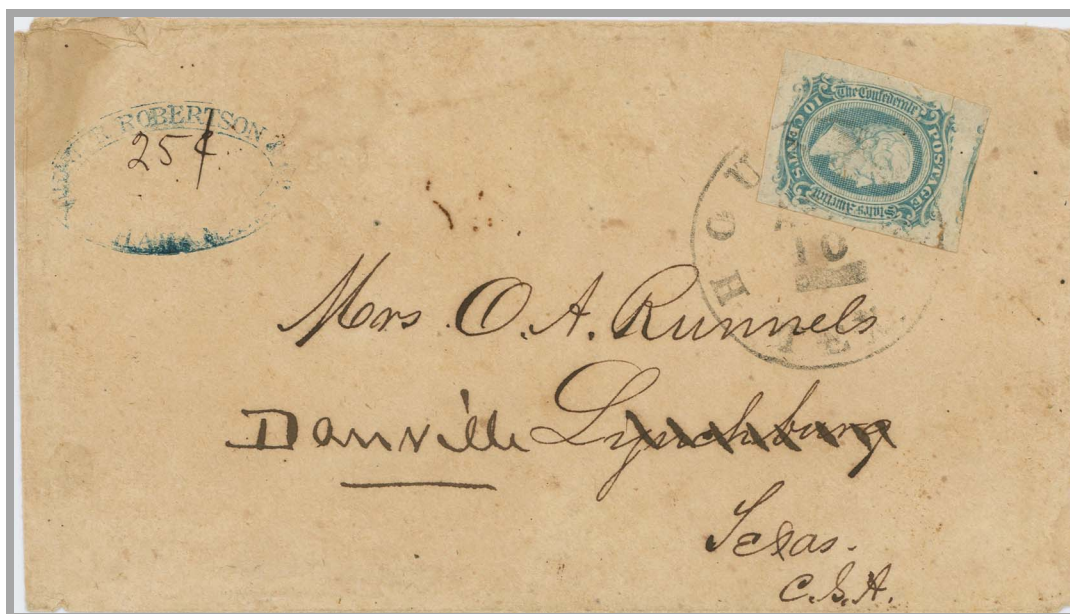 ROBERTSON &
25¢.
The Confederate
States America
POSTAGE
10 CENTS
HOU
10
TEX
Mrs O. A. Runnels
Danville Lynchburg
Texas.
C.S.A.